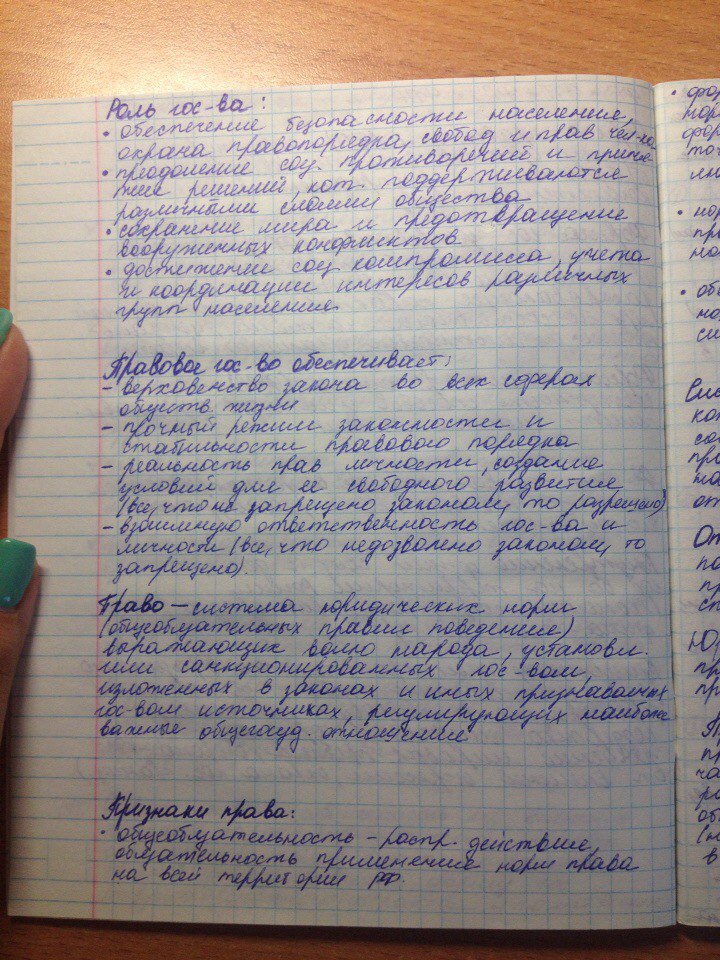 Роль гос-ва:
• обеспечение безопасности населения,
охрана правопорядка, свобод и прав чел-ка
• преодоление соц. противоречий и приня-
тие решений, кот. поддерживаются
различными слоями общества
• сохранение мира и предотвращение
вооруженных конфликтов
• достижении соц компромисса, учета
и координации интересов различных
групп населения.
Правовое гос-во обеспечивает:
- верховенство закона во всех сферах
обществ. жизни
- прочный режим законности и
стабильности правового порядка
- реальность прав личности, создание
условий для ее свободного развития
(все, что не запрещено законом, то разрешено)
- взаимную ответственность гос-ва и
личности (все, что недозволено законом, то
запрещено).
Право – система юридических норм
(общеобязательных правил поведения)
выражающих волю народа, установл.
или санкционированных гос-вом,
изложенных в законах и иных признаваемых
гос-вом источниках, регулирующих наиболее
важные общегосуд. отношения
Признаки права:
• общеобязательность – распр. действие,
обязательность применения норм права
на всей территории РФ.
фор
нор
фор
точ
• нор
пра
на
• обе
но
си
Сис
ко
со
пр
От
по
пр
ст
Юр
пр
пр
пр
ча
ра
об
(н
в